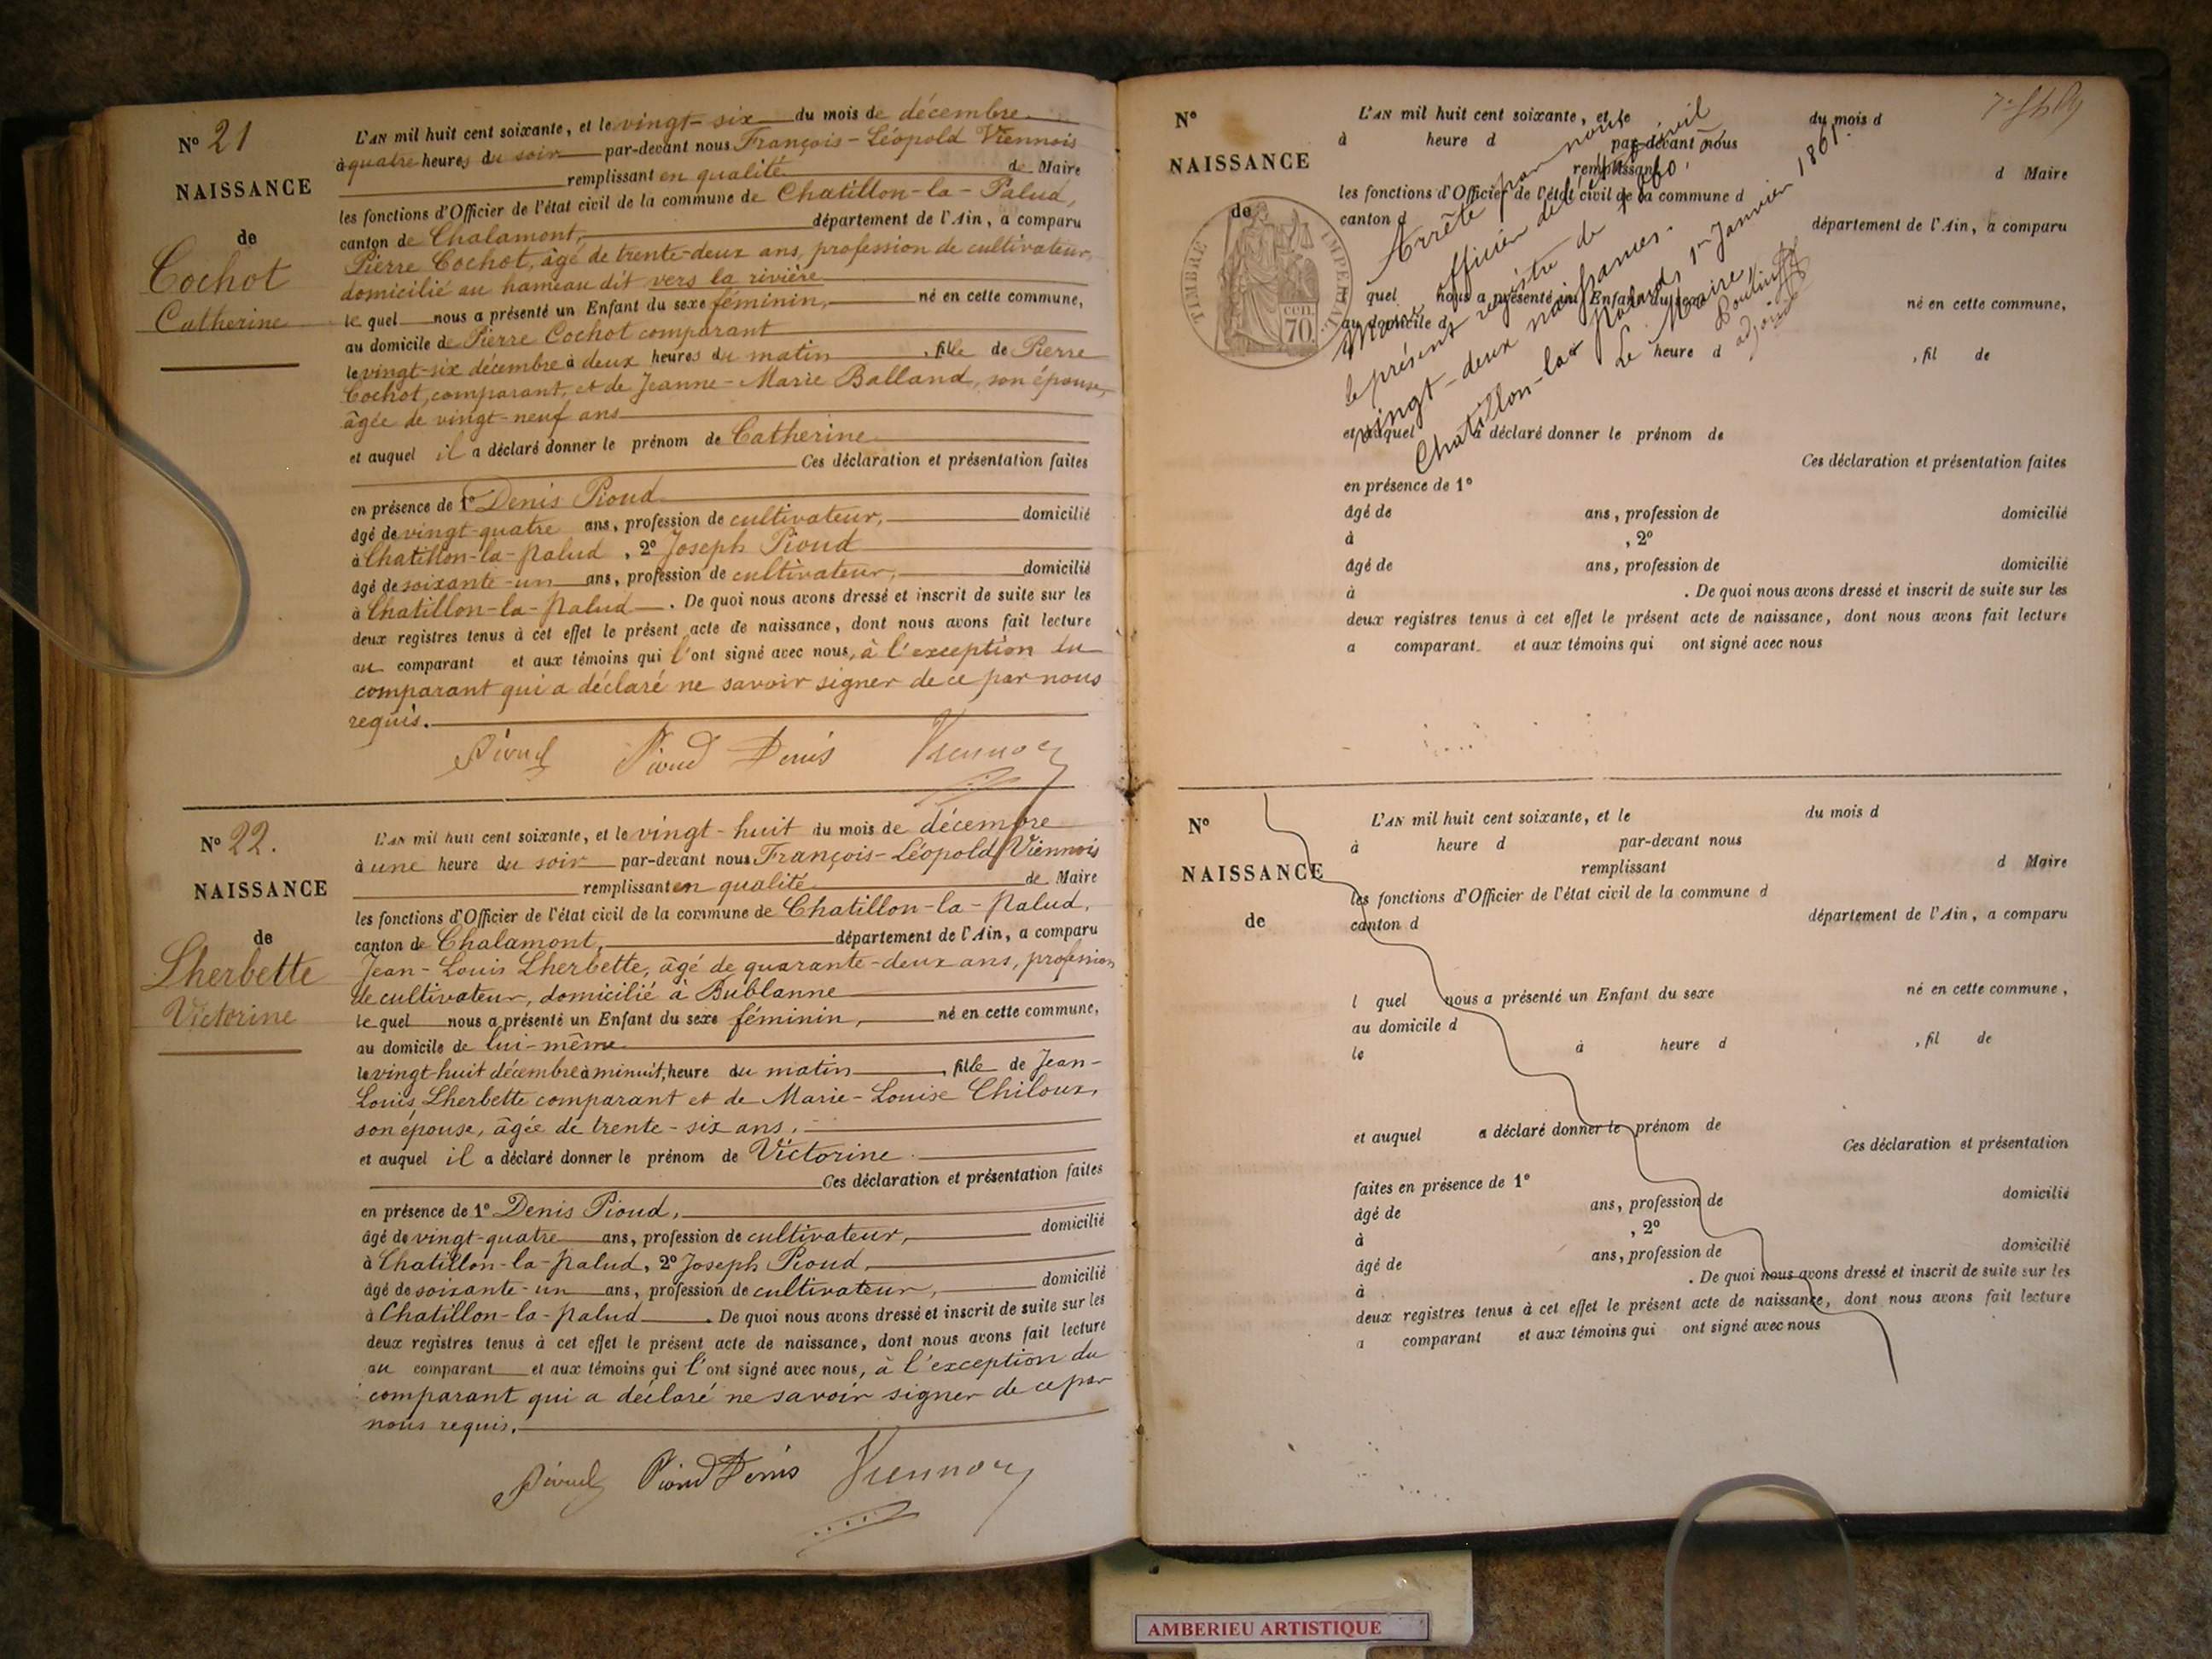 N° 21
NAISSANCE
de
Cochot
Catherine
L'AN mil huit cent soixante, et le vingt-six du mois de décembre
à quatre heures du soir par-devant nous François-Léopold Viennois
remplissant en qualité de Maire
les fonctions d'Officier de l'état civil de la commune de Chatillon-la-Palud,
canton de Chalamont, département de l'Ain, a comparu
Pierre Cochot, âgé de trente-deux ans, profession de cultivateur,
domicilié au hameau dit vers la rivière
le quel nous a présenté un Enfant du sexe féminin, né en cette commune,
au domicile de Pierre Cochot comparant
le vingt-six décembre à deux heures du matin, fille de Pierre
Cochot, comparant, et de Jeanne-Marie Balland, son épouse,
âgée de vingt-neuf ans
et auquel il a déclaré donner le prénom de Catherine
Ces déclaration et présentation faites
en présence de 1° Denis Pioud
âgé de vingt-quatre ans, profession de cultivateur, domicilié
à Chatillon-la-Palud, 2° Joseph Pioud
âgé de soixante-un ans, profession de cultivateur, domicilié
à Chatillon-la-Palud. De quoi nous avons dressé et inscrit de suite sur les
deux registres tenus à cet effet le présent acte de naissance, dont nous avons fait lecture
au comparant et aux témoins qui l'ont signé avec nous, à l'exception du
comparant qui a déclaré ne savoir signer de ce par nous
requis.
Pioud Pioud Denis Viennois
N° 22.
NAISSANCE
de
Lherbette
Victorine
L'AN mil huit cent soixante, et le vingt-huit du mois de décembre
à une heure du soir par-devant nous François-Léopold Viennois
remplissant en qualité de Maire
les fonctions d'Officier de l'état civil de la commune de Chatillon-la-Palud,
canton de Chalamont, département de l'Ain, a comparu
Jean-Louis Lherbette, âgé de quarante-deux ans, profession
de cultivateur, domicilié à Bublanne
le quel nous a présenté un Enfant du sexe féminin, né en cette commune,
au domicile de lui-même
le vingt-huit décembre à minuit, heure du matin, fille de Jean-
Louis Lherbette comparant et de Marie-Louise Chiloux,
son épouse, âgée de trente-six ans,
et auquel il a déclaré donner le prénom de Victorine
Ces déclaration et présentation faites
en présence de 1° Denis Pioud,
âgé de vingt-quatre ans, profession de cultivateur, domicilié
à Chatillon-la-Palud, 2° Joseph Pioud,
âgé de soixante-un ans, profession de cultivateur, domicilié
à Chatillon-la-Palud. De quoi nous avons dressé et inscrit de suite sur les
deux registres tenus à cet effet le présent acte de naissance, dont nous avons fait lecture
au comparant et aux témoins qui l'ont signé avec nous, à l'exception du
comparant qui a déclaré ne savoir signer de ce par
nous requis.
Pioud Pioud Denis Viennois
N°
NAISSANCE
de
TIMBRE IMPERIAL
70 cen
L'AN mil huit cent soixante, et le du mois d
à heure d par-devant nous
remplissant d Maire
les fonctions d'Officier de l'état civil de la commune d
canton d département de l'Ain, a comparu
l quel nous a présenté un Enfant du sexe né en cette commune,
au domicile d
heure d , fil de
et auquel a déclaré donner le prénom de
Ces déclaration et présentation faites
en présence de 1°
âgé de ans, profession de domicilié
à , 2°
âgé de ans, profession de domicilié
à . De quoi nous avons dressé et inscrit de suite sur les
deux registres tenus à cet effet le présent acte de naissance, dont nous avons fait lecture
a comparant et aux témoins qui ont signé avec nous
Arrêté par nous
Maire officier de l'état civil
le présent registre de 1860,
vingt-deux naissances.
Chatillon-la-Palud, 1er Janvier 1861.
Le Maire,
adjoint
N°
NAISSANCE
de
L'AN mil huit cent soixante, et le du mois d
à heure d par-devant nous
remplissant d Maire
les fonctions d'Officier de l'état civil de la commune d
canton d département de l'Ain, a comparu
l quel nous a présenté un Enfant du sexe né en cette commune,
au domicile d
le à heure d , fil de
et auquel a déclaré donner le prénom de
Ces déclaration et présentation
faites en présence de 1°
âgé de ans, profession de domicilié
à , 2°
âgé de ans, profession de domicilié
à . De quoi nous avons dressé et inscrit de suite sur les
deux registres tenus à cet effet le présent acte de naissance, dont nous avons fait lecture
a comparant et aux témoins qui ont signé avec nous
AMBERIEU ARTISTIQUE